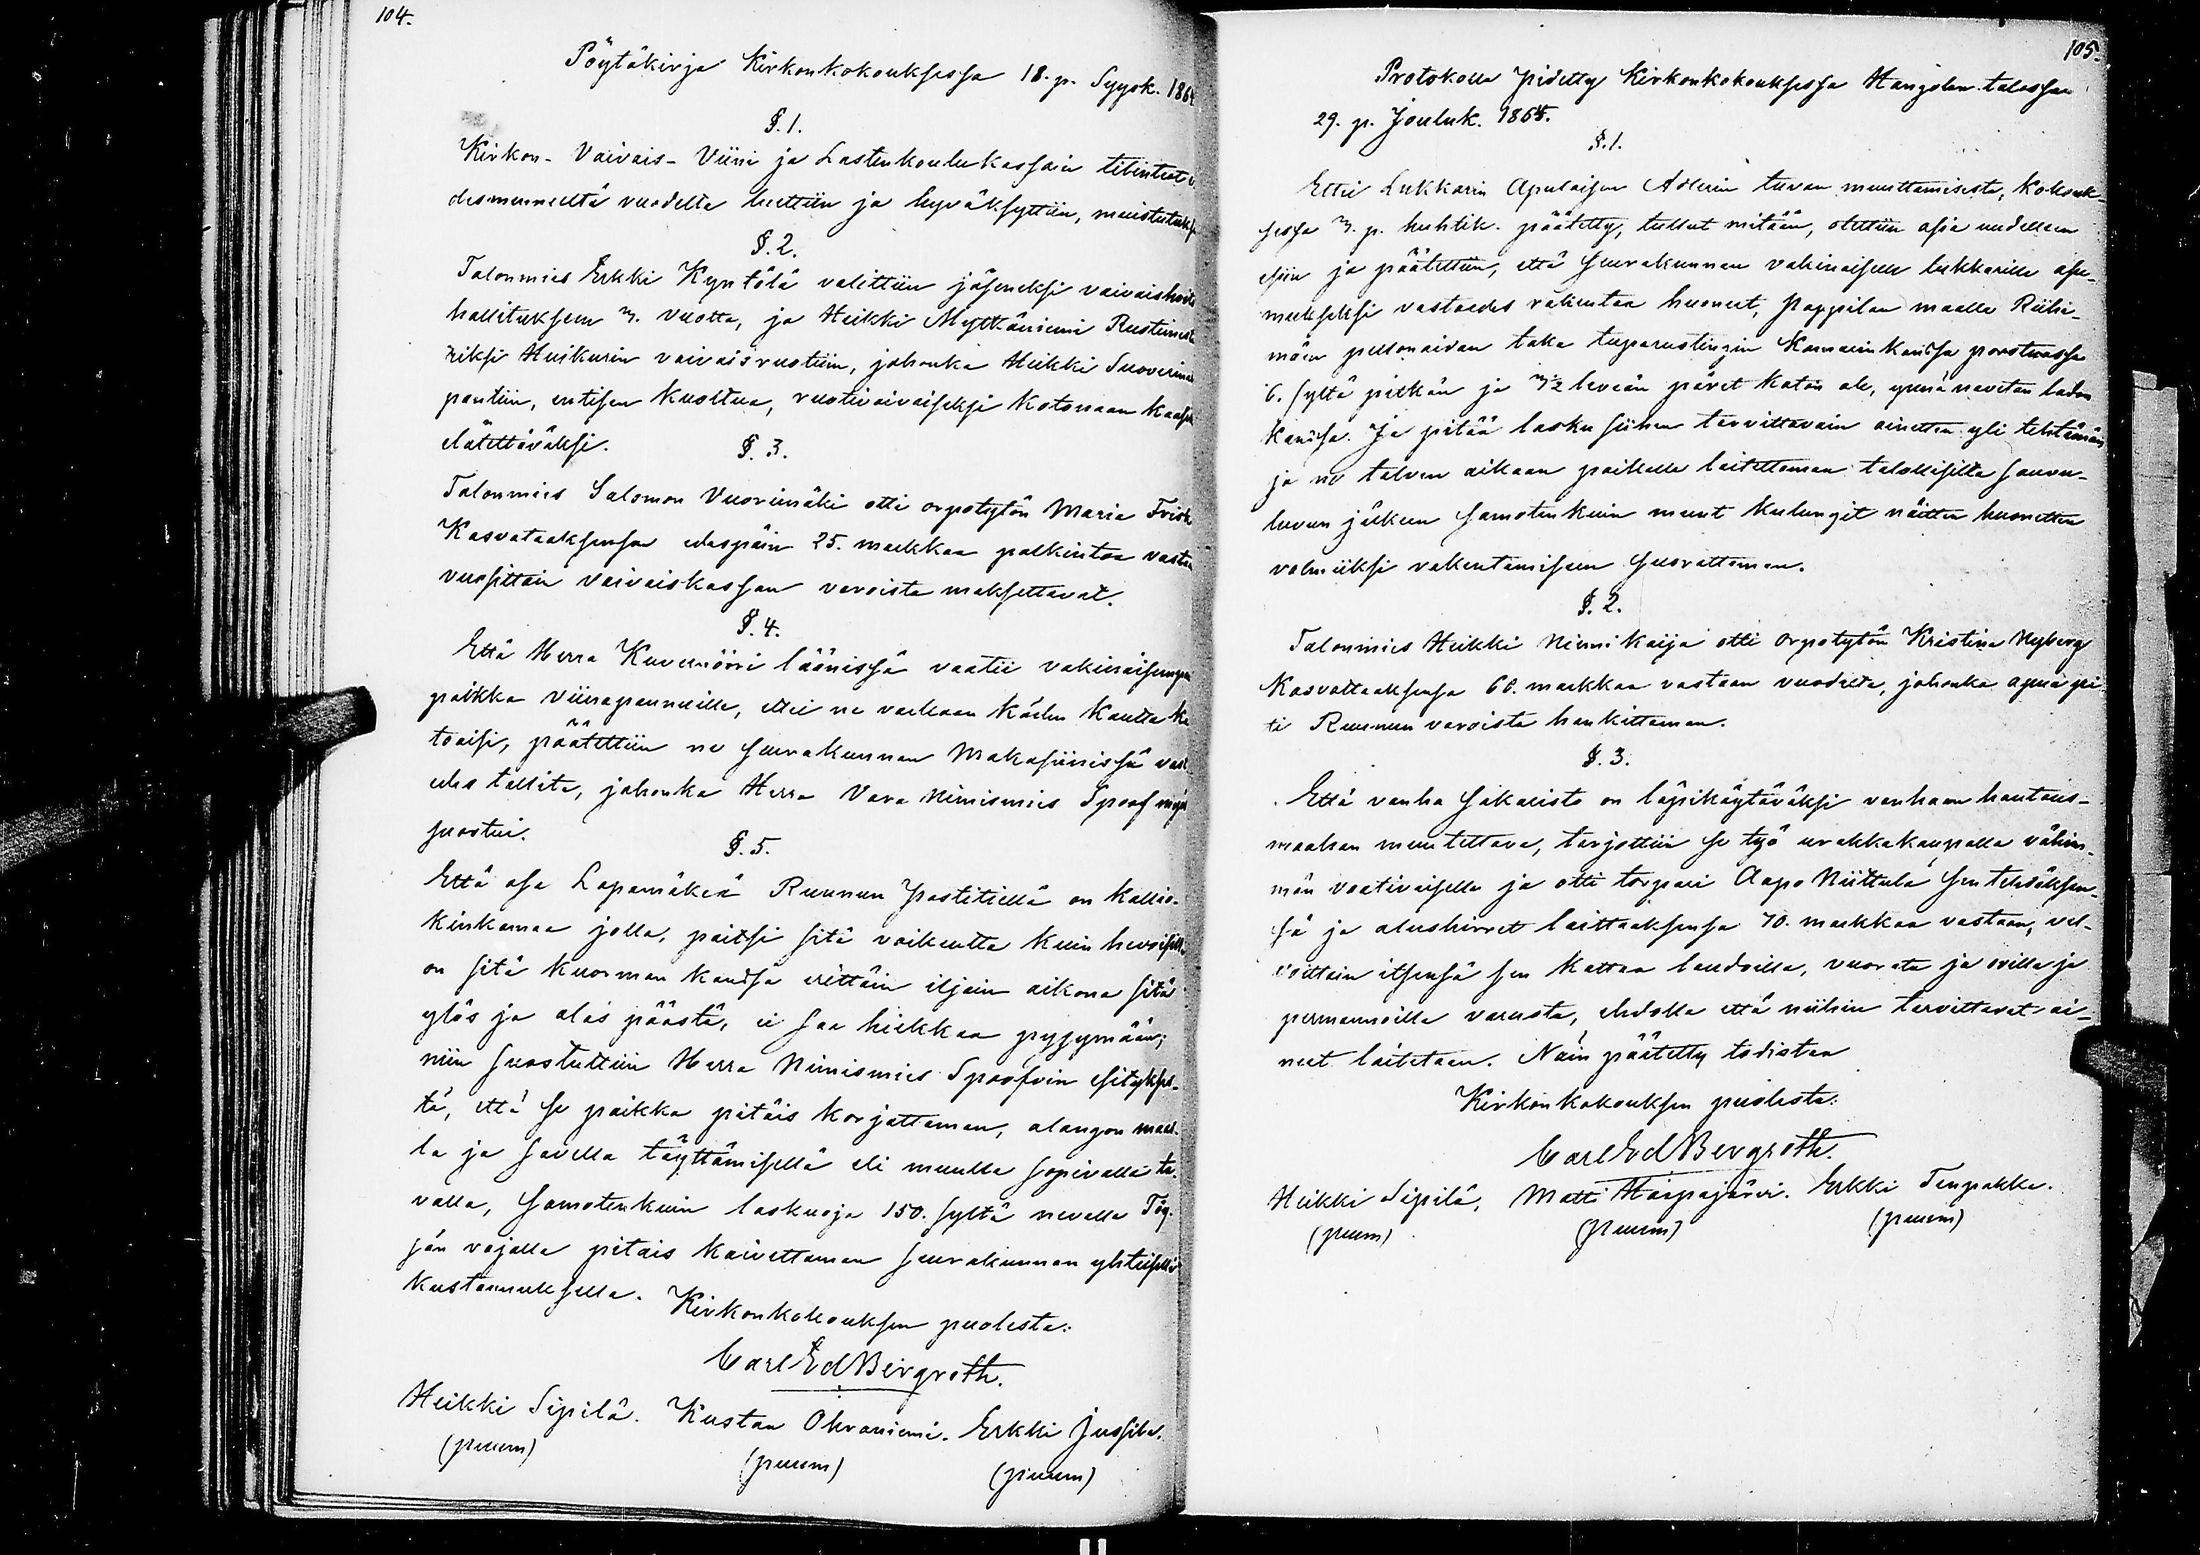 104.
Pöytäkirja Kirkonkokouksessa 18. p. Syysk. 1864
§. 1.
Kirkon- Vaivais- Viini ja Lastenkoulukassain tilinteot v
desmenneeltä vuodelta luettiin ja hyväksyttiin, muistutuks
§. 2.
Talonmies Erkki Kyntölä valittiin jäseneksi vaivaishoito
hallitukseen 3. vuotta, ja Heikki Myllkäniemi Rustimest
riksi Huikurin vaivaisruotiin, johonka Heikki Suoverinen
pantiin, entisen kuoltua, ruotivaivaiseksi kotonaan
elätettäväksi.
§. 3.
Talonmies Salomon Vuorimäki otti orpotytön Maria Frisk
Kasvataaksensa edespäin 25. markkaa palkintoa vastaan
vuosittain vaivaiskassan varoista maksettavat.
§. 4.
Että Herra Kuvernööri läänissä vaatii vakinaisempa
paikka viinapannuille, ettei ne vaihaan käden kautta ka
toaisi, päätettiin ne seurakunnan Makasiinissä vast
edes tallita, johonka Herra Vara Nimismies Spoof myös
suostui.
§. 5.
Että osa Lapamäkeä Ruunun Postitiellä on kallio-
kinkamaa jolla, paitsi sitä vaikeutta kuin hevoisilla
on sitä kuorman kanssa erittäin iljain aikona sitä
ylös ja alas päästä, ei saa hiekkaa pysymään;
niin suostuttiin Herra Nimismies Spoofvin esitykses-
tä, että se paikka pitäis korjattaman, alangon maal-
la ja savella täyttämisellä eli muulla sopivalla ta-
valla, samotenkuin laskuoja 150. syltä nevalla Töy-
sän rajalla pitäis kaivettaman seurakunnan yhteisellä
kustannuksella. Kirkonkokouksen puolesta:
Carl Ed Bergroth.
Heikki Sipilä. Kustaa Ohraniemi. Erkki Jussila.
(puum) (puum) (puum)
105.
Protokolla pidetty Kirkonkokouksessa Hangolan talossa
29. p. Jouluk. 1864.
§. 1.
Ettei Lukkarin Apulaisen Adlerin tuvan muuttamisesta, kokouk-
sessa 3. p. huhtik. päätetty, tullut mitään, otettiin asia uudellaan
esiin ja päätettiin, että seurakunnan vakinaiselle lukkarille asu-
mukseksi vastaedes rakentaa huoneet, Pappilan maalla Riihi-
mäen peltonaidan taka tuparustingin Kamarinkanssa porstuassa
6. syltä pitkän ja 3½ leveän päret katon ale, ynnä navetan ladon
kanssa. Ja pitää lasku siihen tarvittavain ainetten yli tehtämän
ja ne talven aikaan paikalle laitettaman talollisilta savu-
luvun jälkeen samotenkuin muut kulungit näitten huonetten
valmiiksi rakentamiseen suorattaman.
§. 2.
Talonmies Heikki Niemi Kaija otti orpotytön Kristina Nyberg
Kasvattaaksensa 60. markkaa vastaan vuodelta, johonka apua pi-
ti Ruunun varoista hankittaman.
§. 3.
Että vanha sakaristo on läpikäytäväksi vanhaan hautaus-
maahan muutettava, tarjottiin se työ urakkakaupalla vähim-
män vaativaiselle ja otti torpari Aapo Niittula sen tehdäksen-
sä ja alushirret laittaaksensa 70. markkaa vastaan, vel-
voittain itsensä sen kattaa laudoilla, vuorata ja ovilla ja
permannoilla varusta, ehdolla että niihin tarvittavat ai-
neet laitetaan. Näin päätetty todistaa
Kirkonkokouksen puolesta:
Carl Ed Bergroth.
Heikki Sipilä, Matti Haapajärvi. Erkki Tenpakka.
(puum) (puum) (puum)